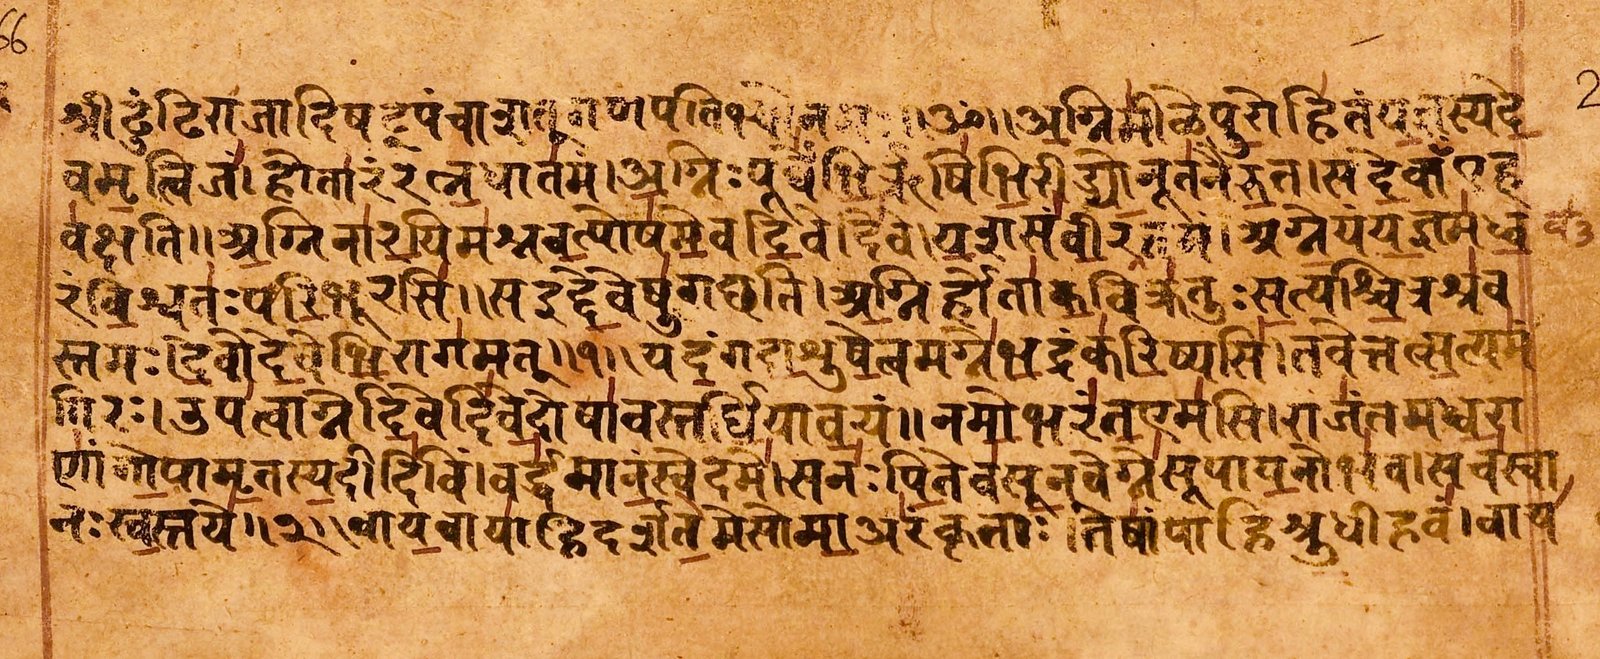 श्रीढुंढिराजादिषट्पंचाशत्गणपतिभ्योनमः॥ॐ॥अग्निमीळेपुरोहितंयज्ञस्यदे
वमृत्विजं।होतारंरत्नधातमं।अग्निःपूर्वेभिर्ऋषिभिरीड्योनूतनैरुत।सदेवाँएह
वक्षति॥अग्निनारयिमश्नवत्पोषमेवदिवेदिवे।यशसंवीरवत्तमं।अग्नेयंयज्ञमध्व
रंविश्वतःपरिभूरसि॥सइद्देवेषुगछति।अग्निर्होताकविक्रतुःसत्यश्चित्रश्रव
स्तमः।देवोदेवेभिरागमत्॥१॥यदंगदाशुषेत्वमग्नेभद्रंकरिष्यसि।तवेत्तत्सत्यमं
गिरः।उपत्वाग्नेदिवेदिवेदोषावस्तर्द्धियावयं॥नमोभरंतएमसि।राजंतमध्वरा
णांगोपामृतस्यदीदिविं।वर्द्धमानंस्वेदमे।सनःपितेवसूनवेग्नेसूपायनोभव।सचस्वा
नःस्वस्तये॥२॥वायवायाहिदर्शतेमेसोमाअरंकृताः।तेषांपाहिश्रुधीहवं।वाय